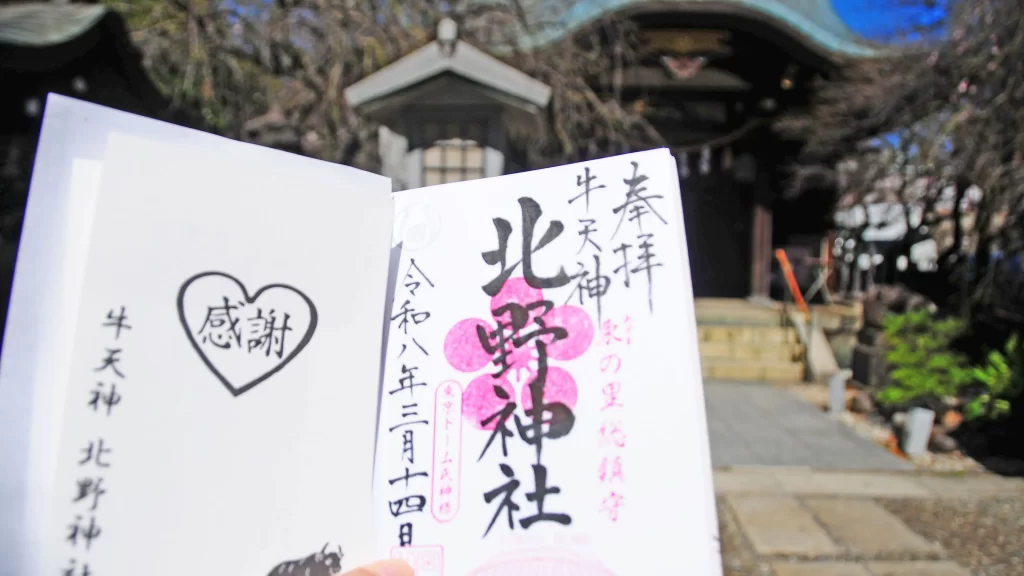 奉拝
牛天神
北野神社
の里総鎮守
東京ドーム氏神様
令和八年三月十四日
感謝
牛天神 北野神社